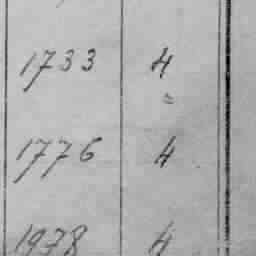 1733 4
=
1776 4
1978 4